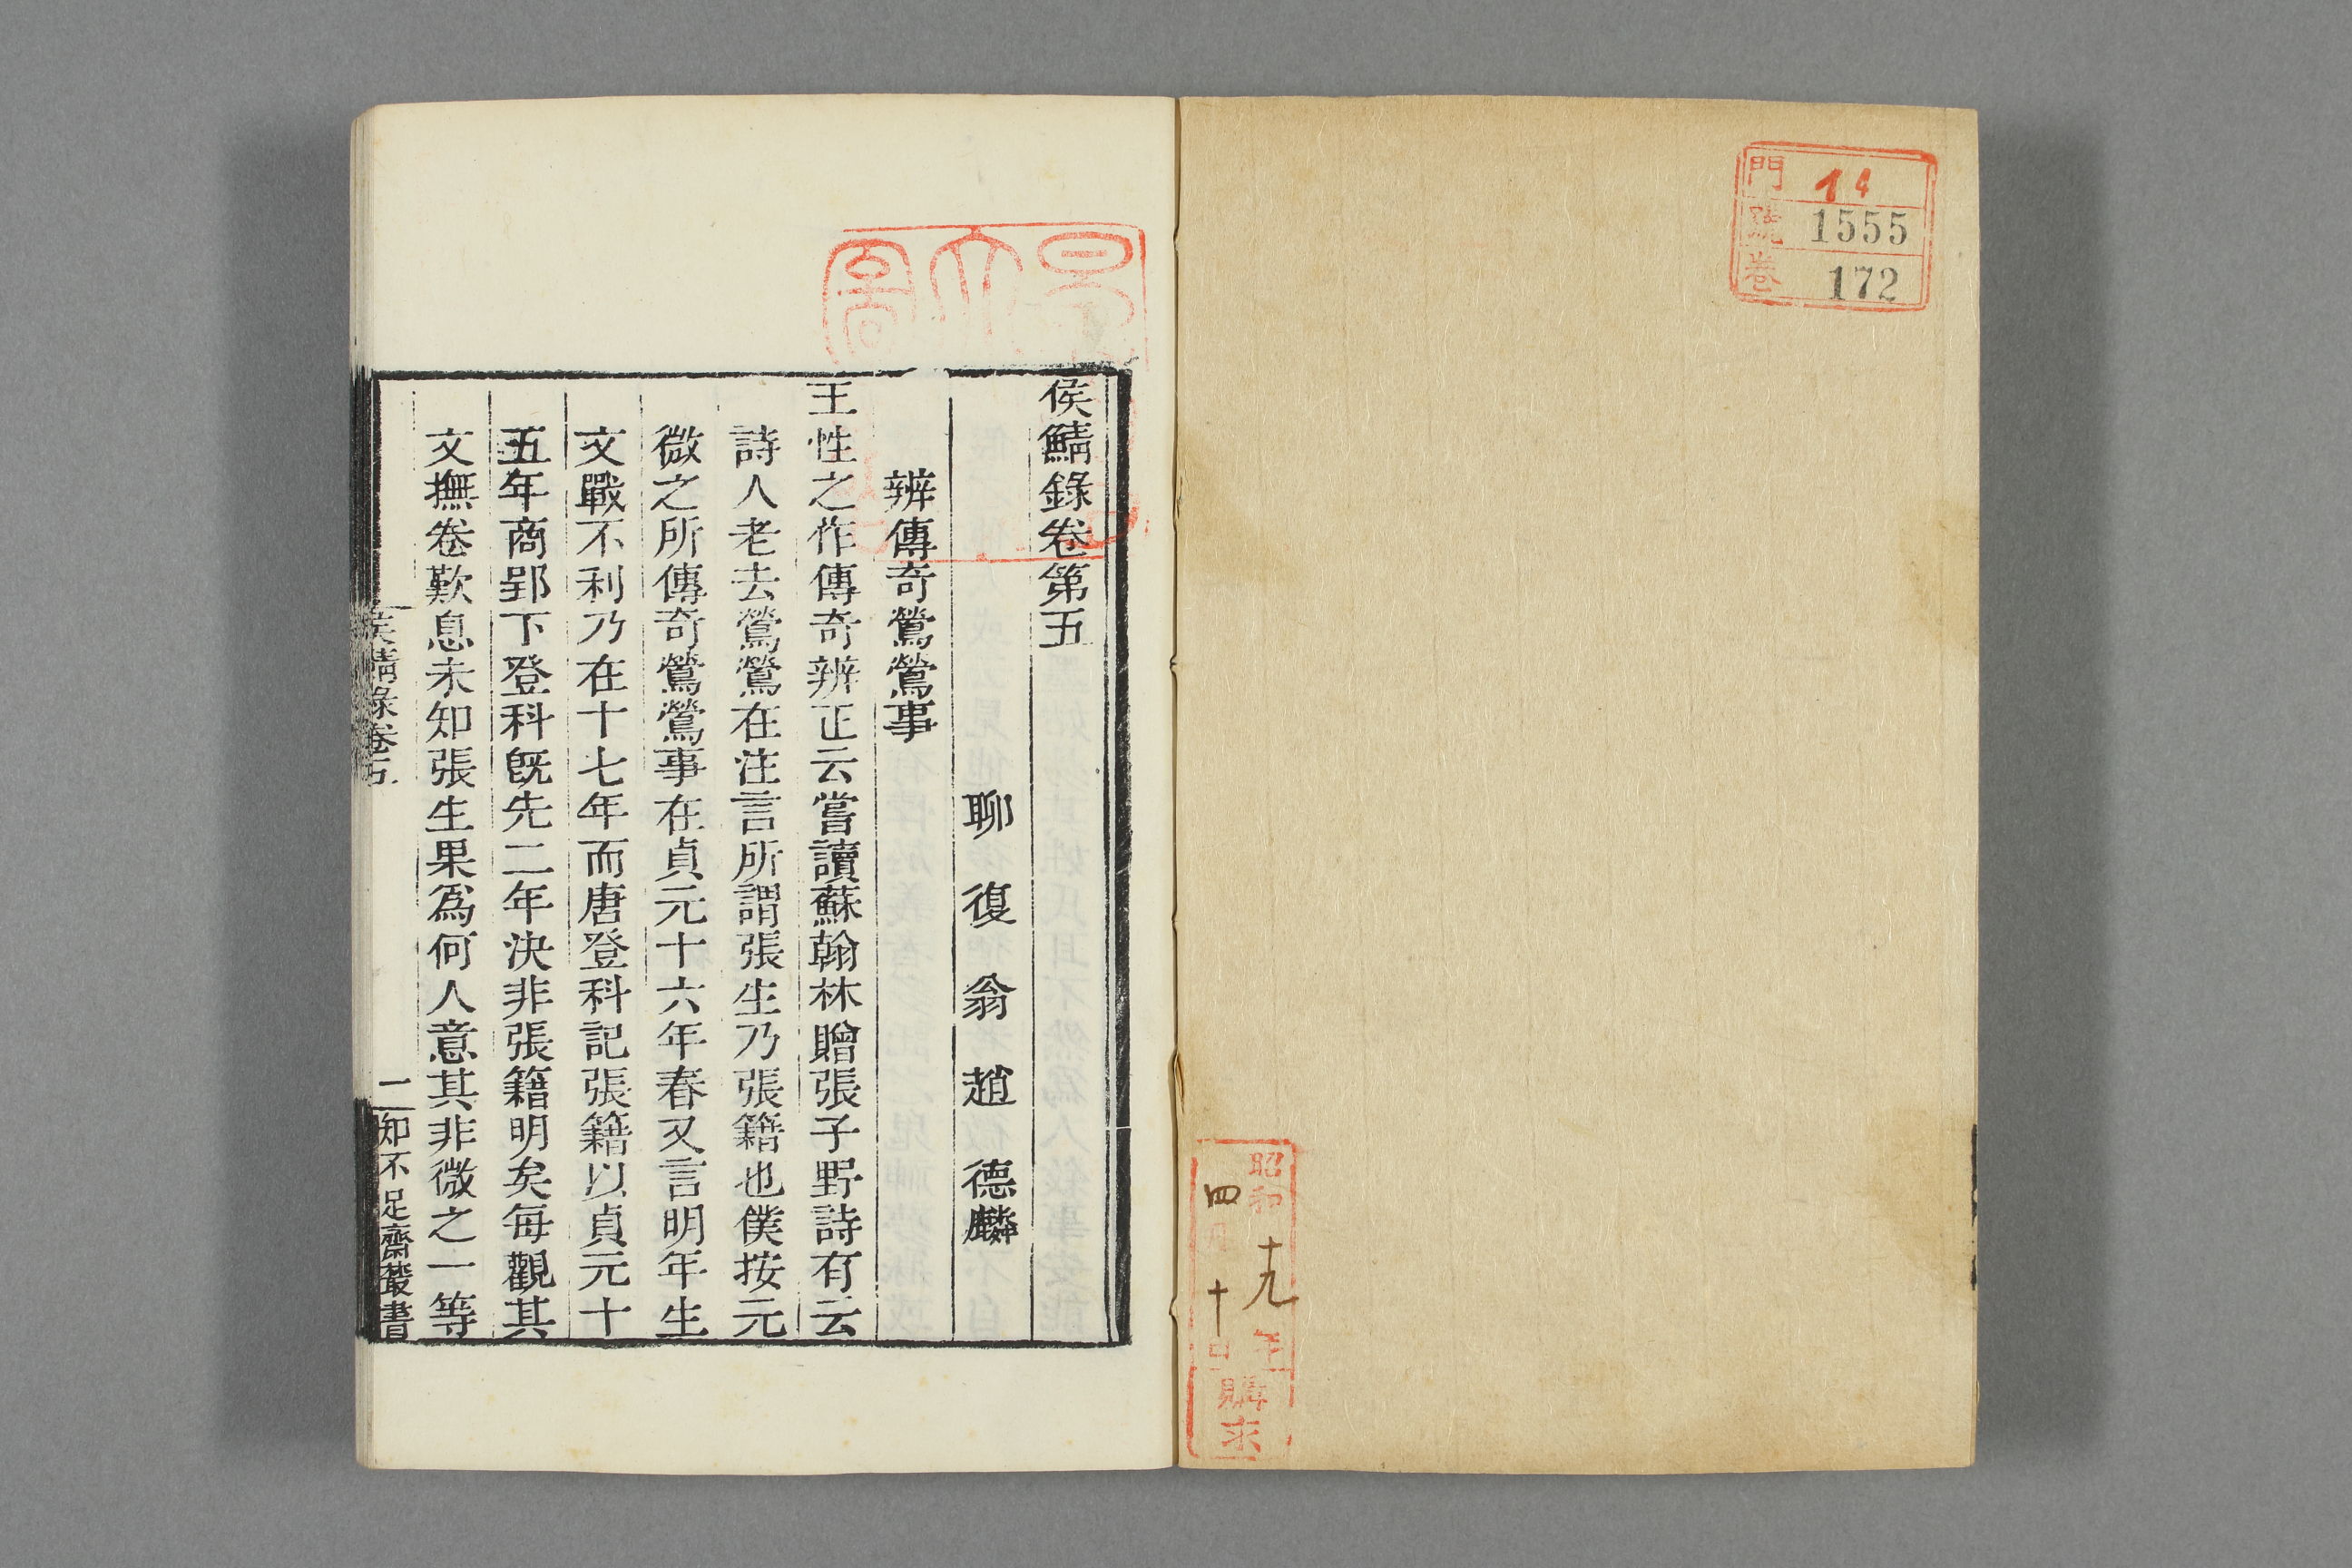 門 14
號 1555
卷 172
昭和十九年
四月十日
購求
侯鯖錄卷第五
聊復翁趙德麟
辨傳奇鶯鶯事
王性之作傳奇辨正云嘗讀蘇翰林贈張子野詩有云
詩人老去鶯鶯在注言所謂張生乃張籍也僕按元
微之所傳奇鶯鶯事在貞元十六年春又言明年生
文戰不利乃在十七年而唐登科記張籍以貞元十
五年商郢下登科旣先二年決非張籍明矣每觀其
文撫卷歎息未知張生果爲何人意其非微之一等
侯鯖錄卷五
一
知不足齋叢書